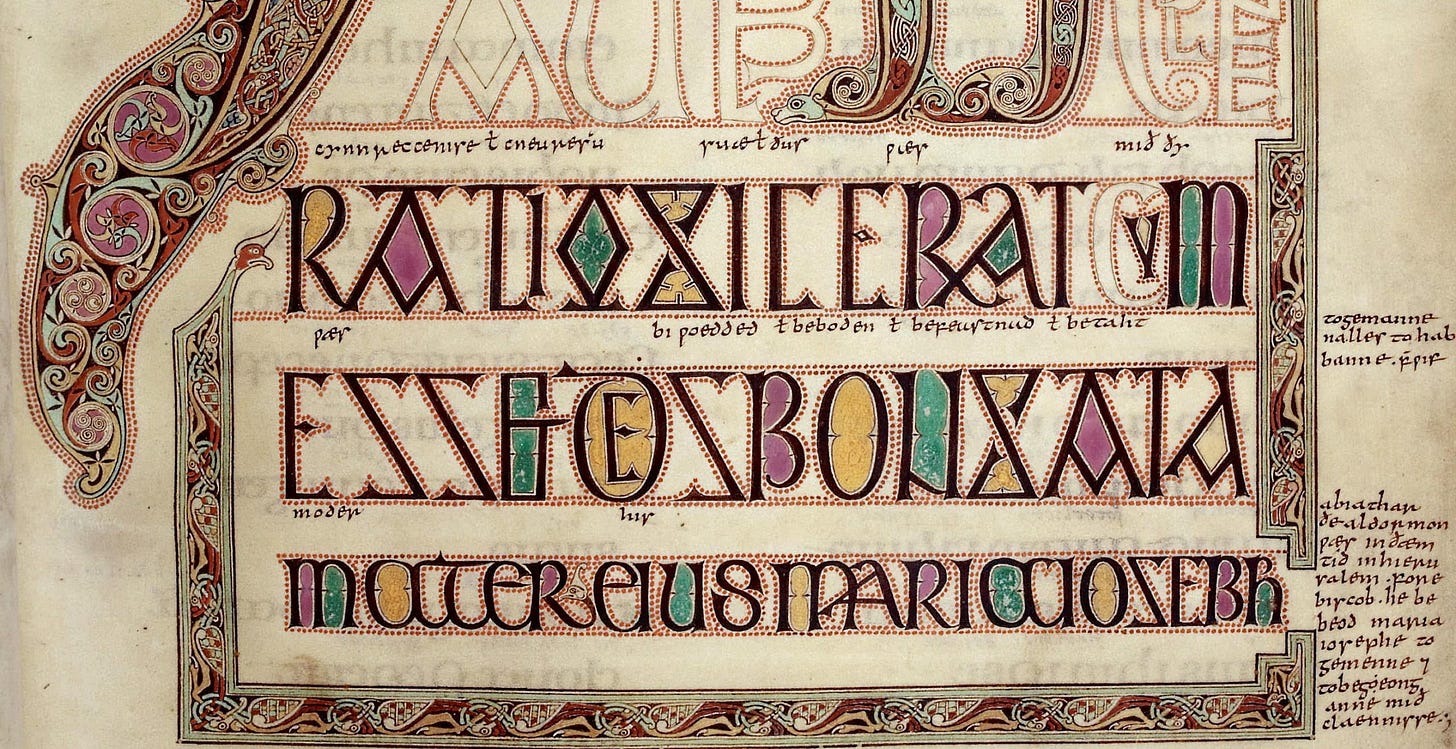 cynnreccenise ł cneuresu suæ ł ðus wæs mið ðy
RATIO SIC ERAT CVM
wæs bi woedded ł beboden ł befeastnad ł betaht
ESSET DESBONSATA
moder his
MATER EIUS MARIA IOSEBH
to gemanne
nalles to hab
banne
abiathar
ðe aldormon
wæs in ðæm
tid in hieru
salem . fone
biscob . he be
beod maria
iosephe to
gemenne ⁊
to begeong
anne mið
claennisse .,